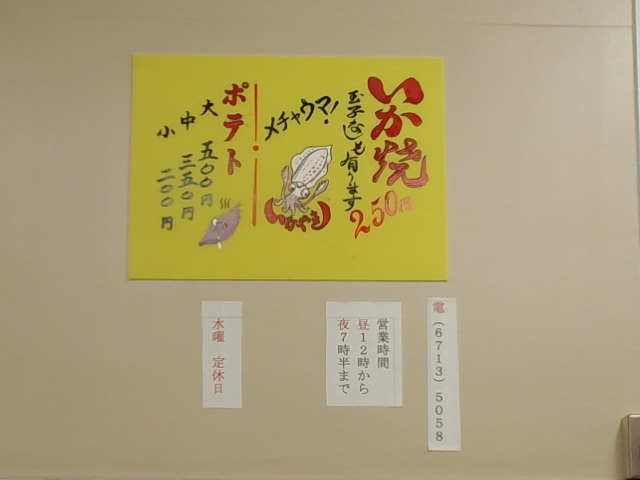 いか焼
250円
玉子なしも有ります
メチャウマ!
いかやき
ポテト
大 五〇〇円
中 三五〇円
小 二〇〇円
電(6713)5058
営業時間
昼12時から
夜7時半まで
水曜 定休日